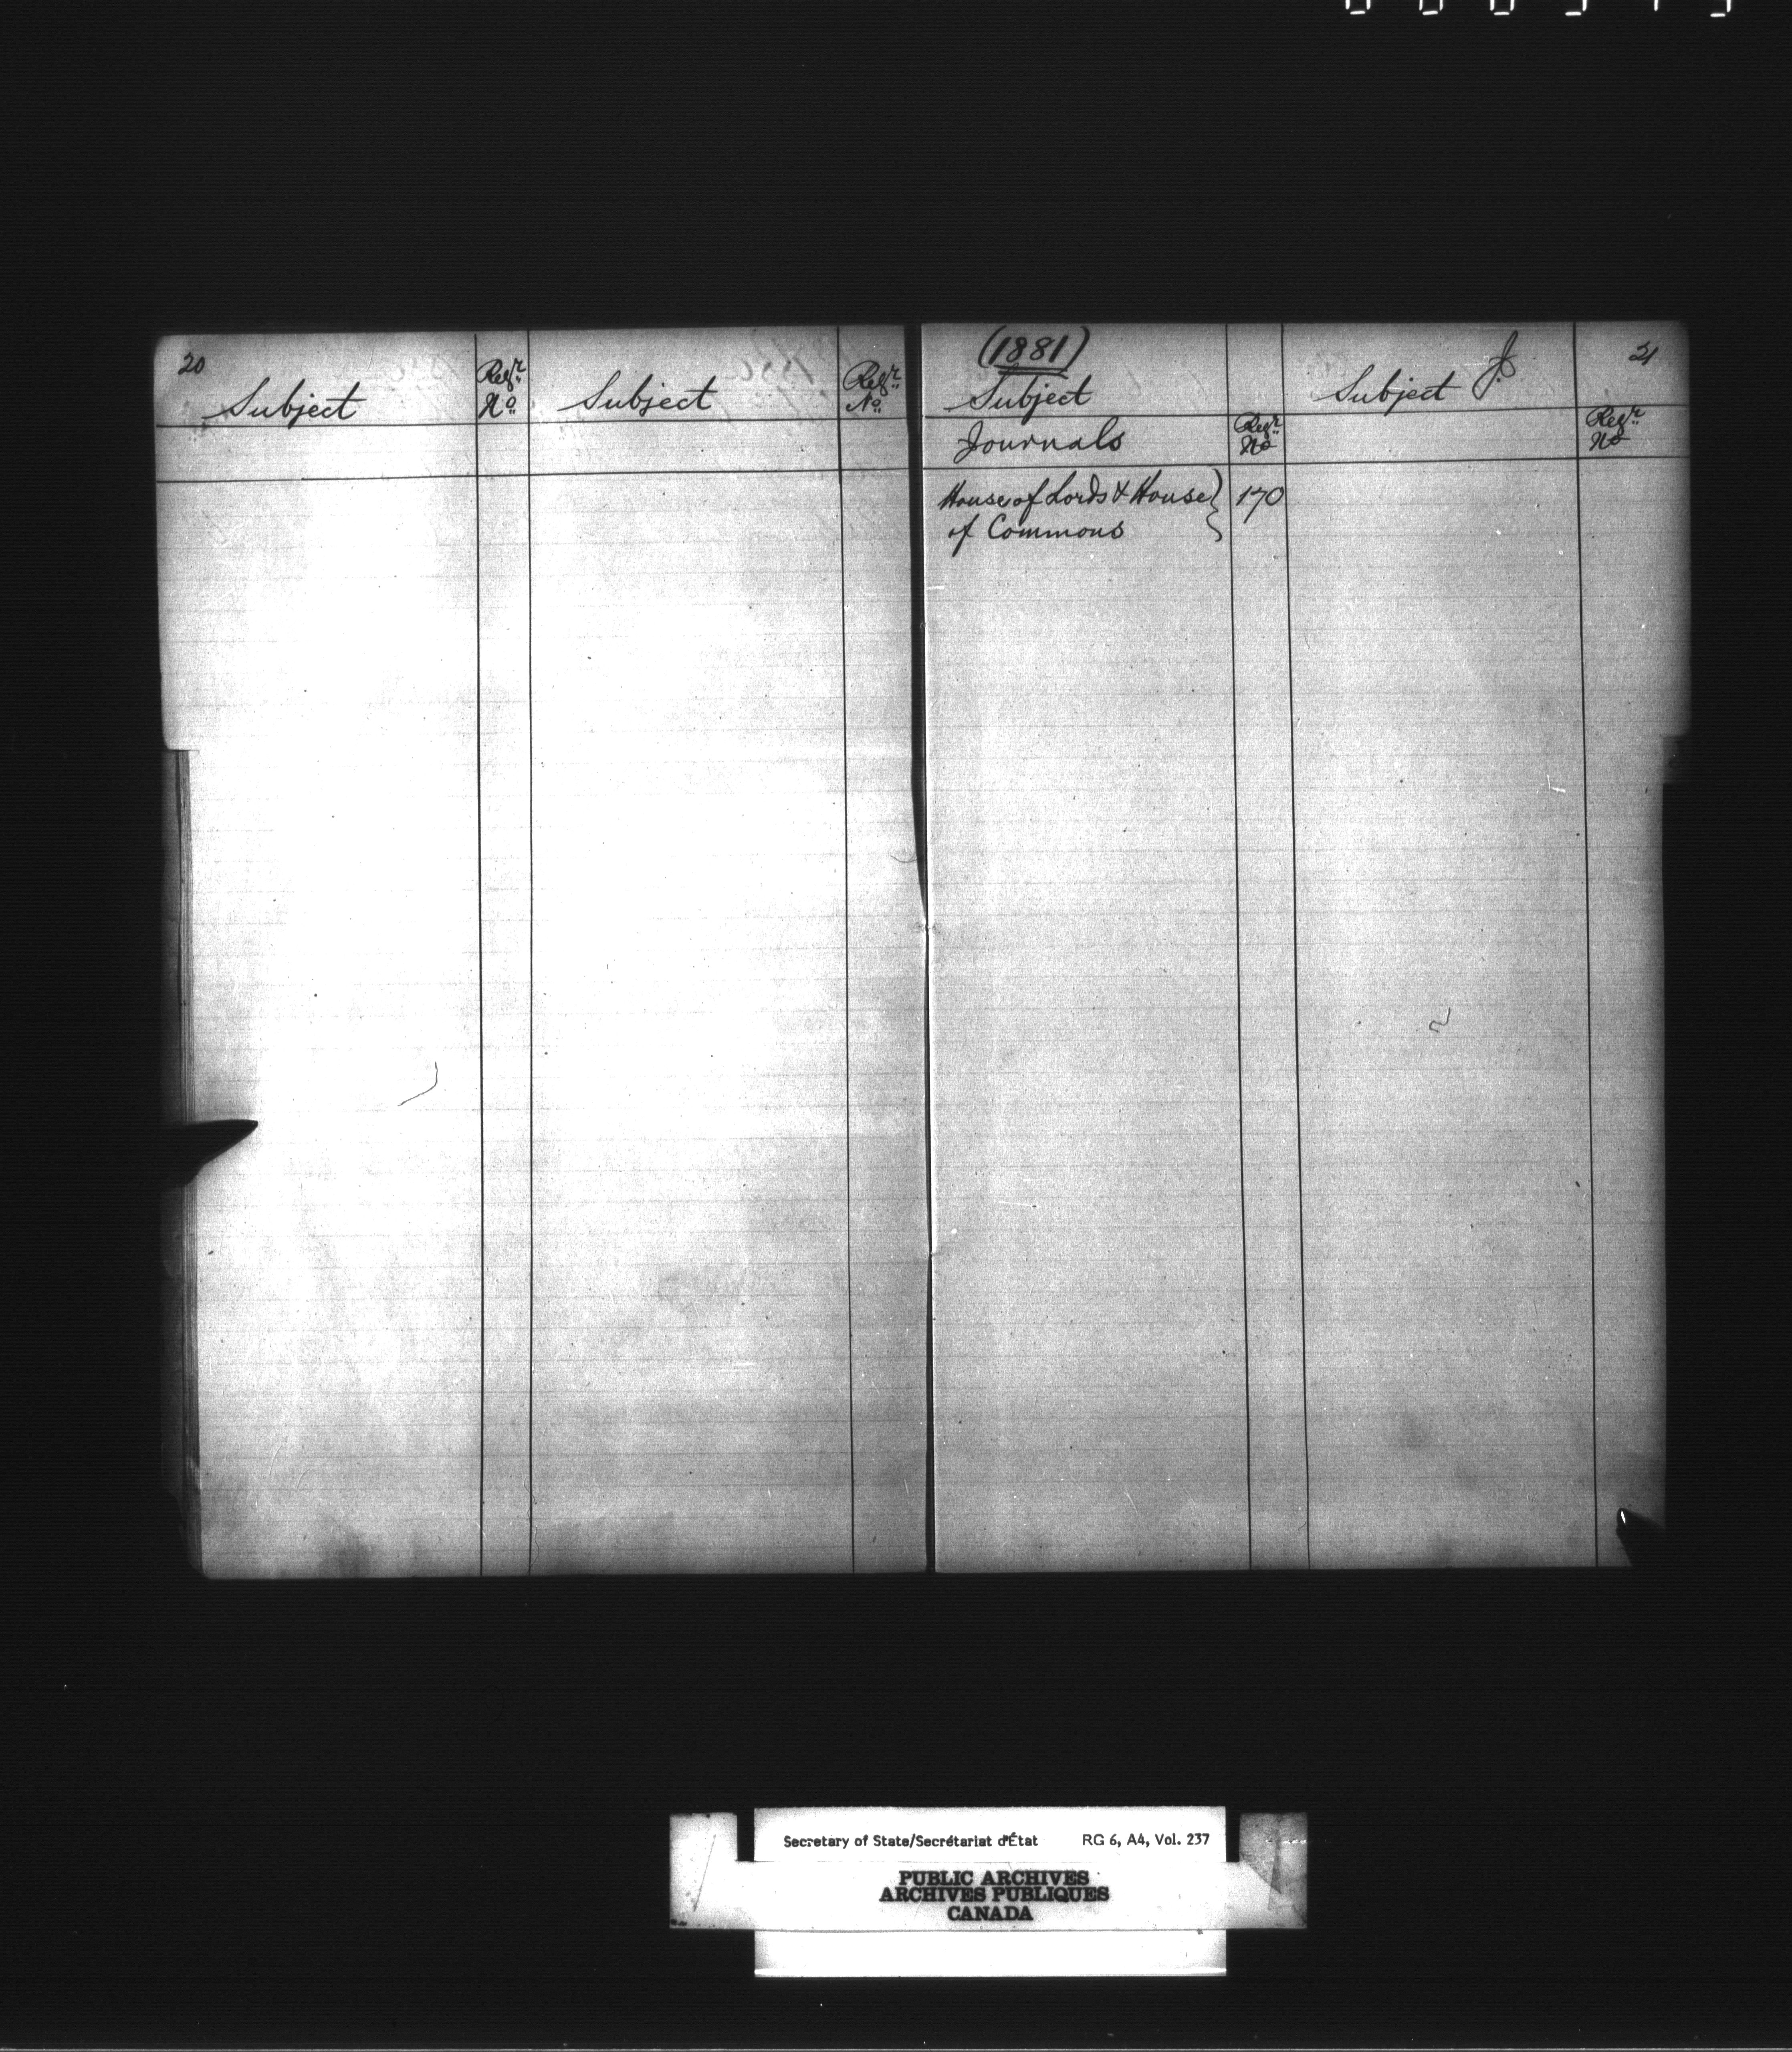 20
Subject
Regr.
No.
Subject
Regr.
No.
(1881)
Subject
Subject
J.
21
Journals
Regr.
No
Regr.
No
House of Lords & House
of Commons
170
Secretary of State/Secrétariat d'État RG 6, A4, Vol. 237
PUBLIC ARCHIVES
ARCHIVES PUBLIQUES
CANADA